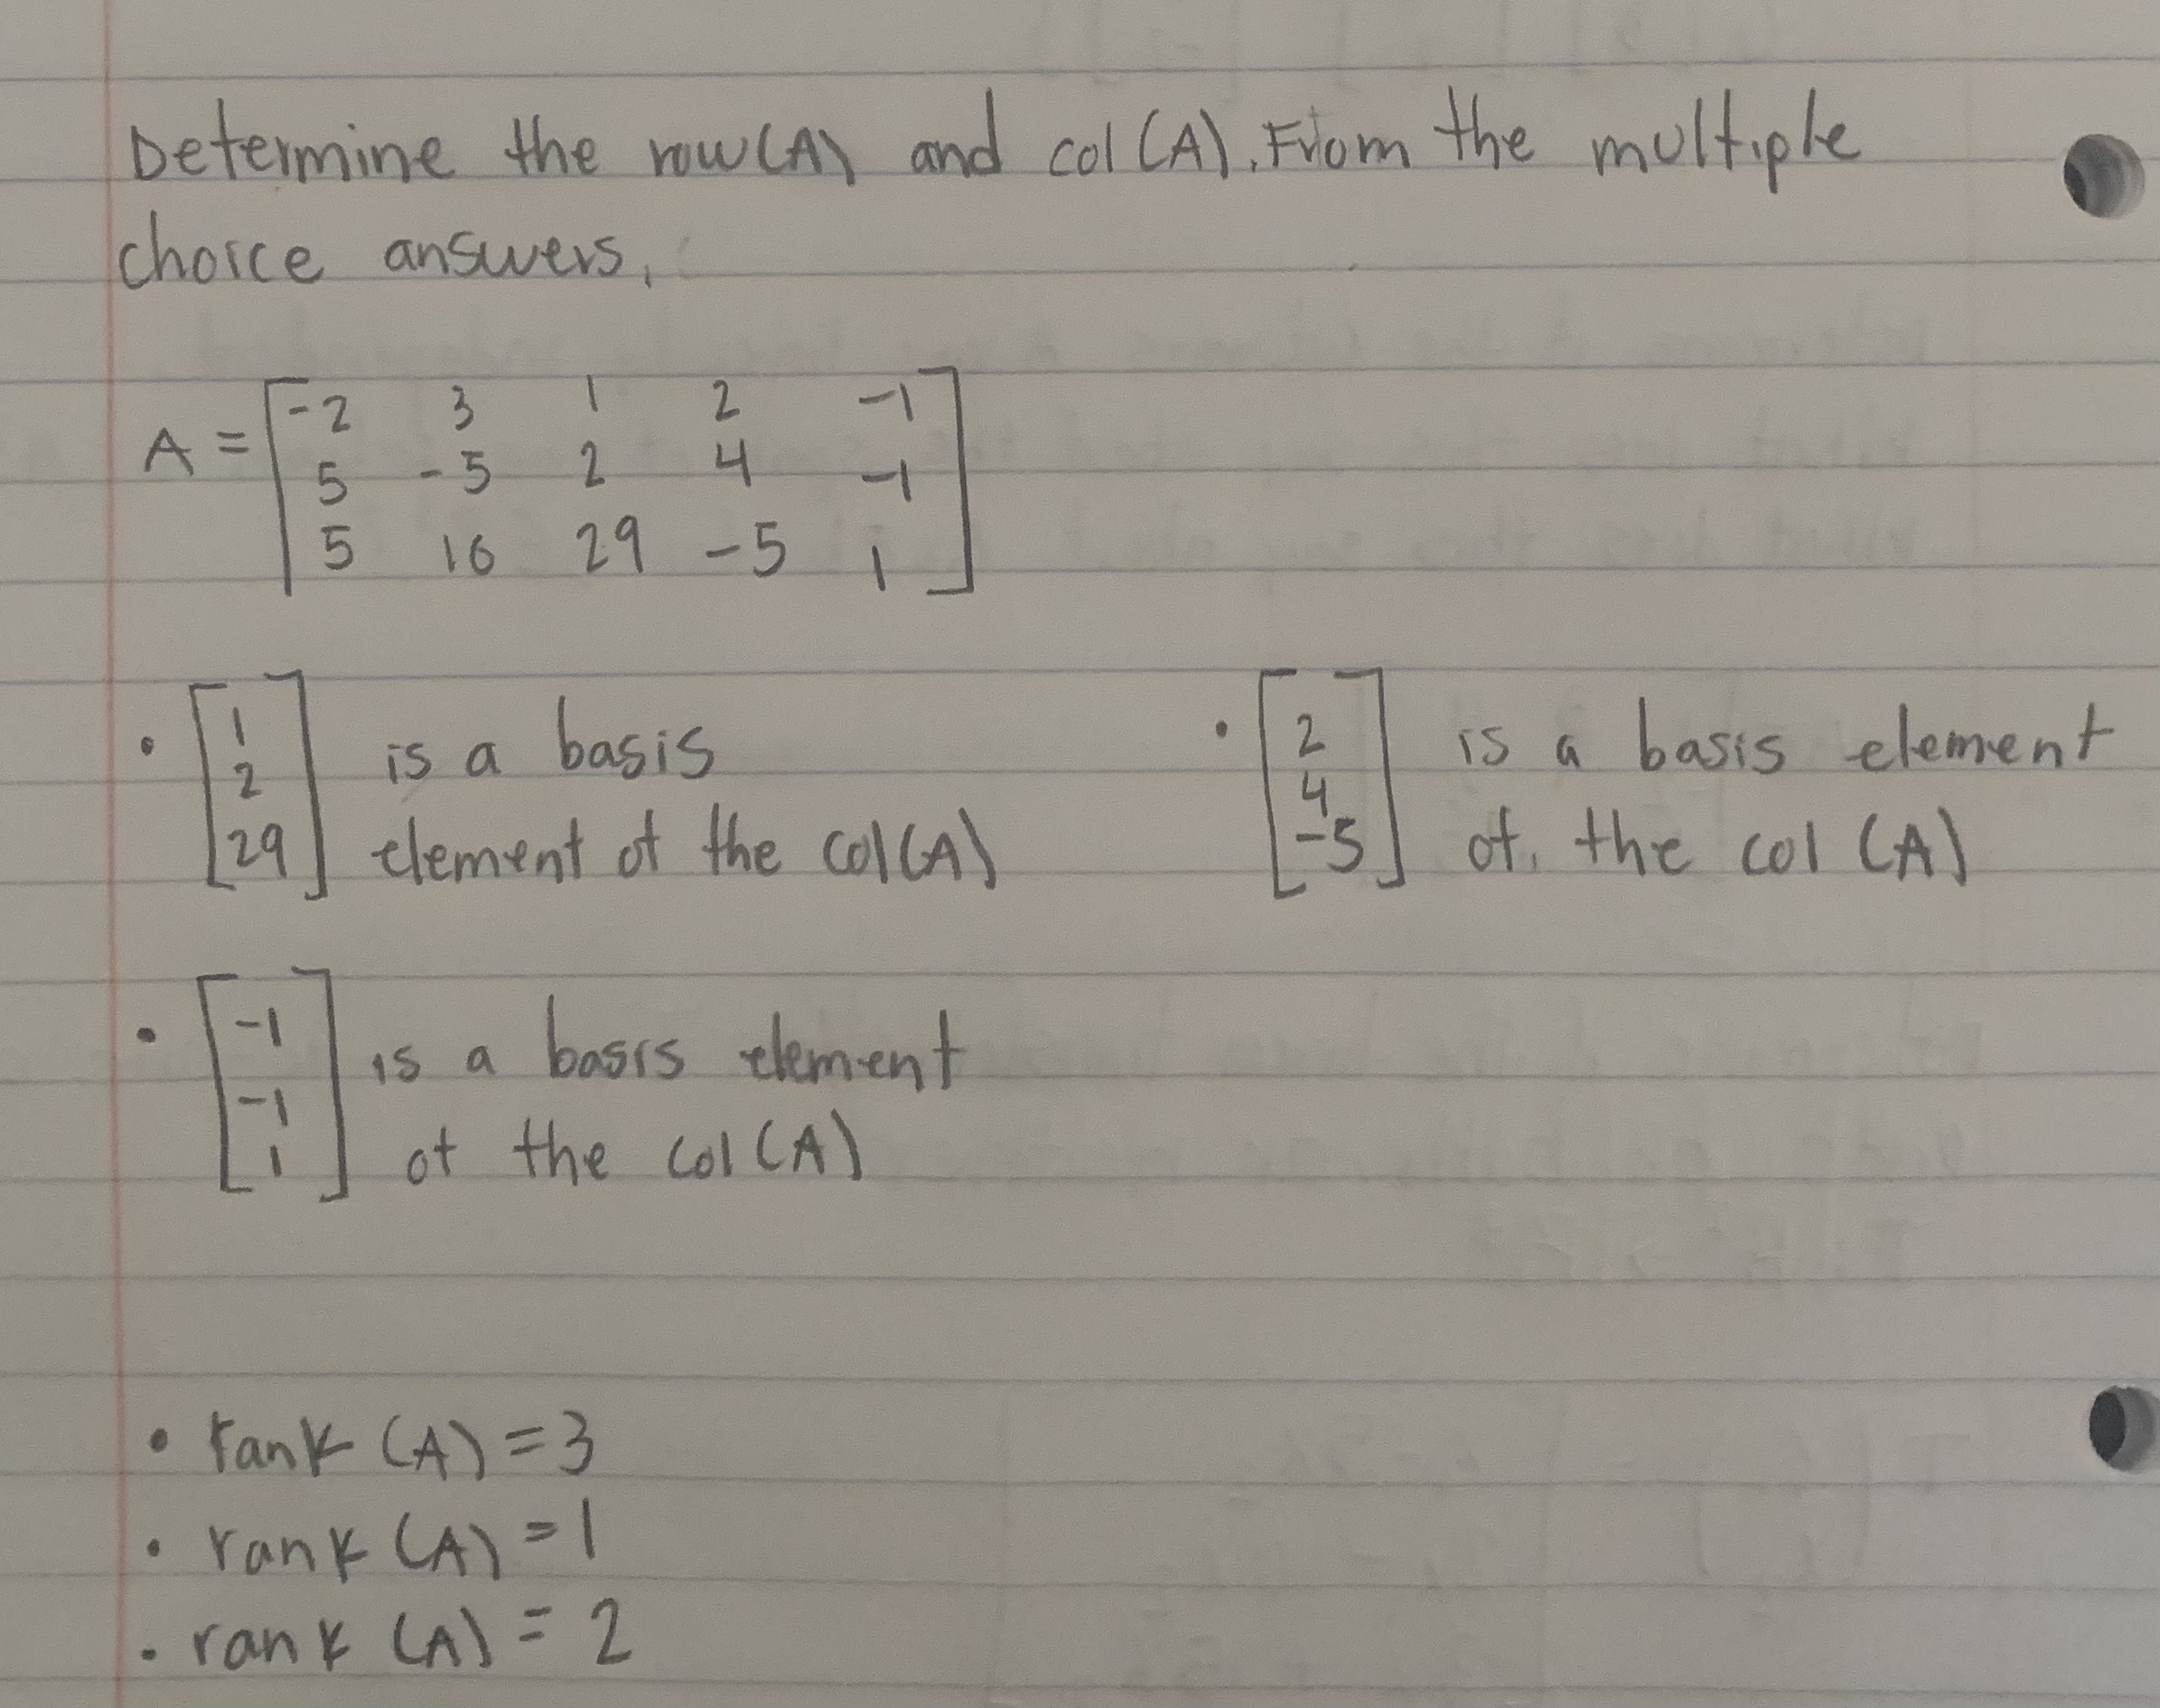 Determine the row(A) and col(A). From the multiple
choice answers.
A = [-2 3 1 2 -1
5 -5 2 4 -1
5 16 29 -5 1]
• [1 2 29] is a basis
element of the col(A)
• [2 4 -5] is a basis element
of. the col (A)
• [-1 -1 1] is a basis element
of the col (A)
• rank (A) = 3
• rank (A) = 1
• rank (A) = 2